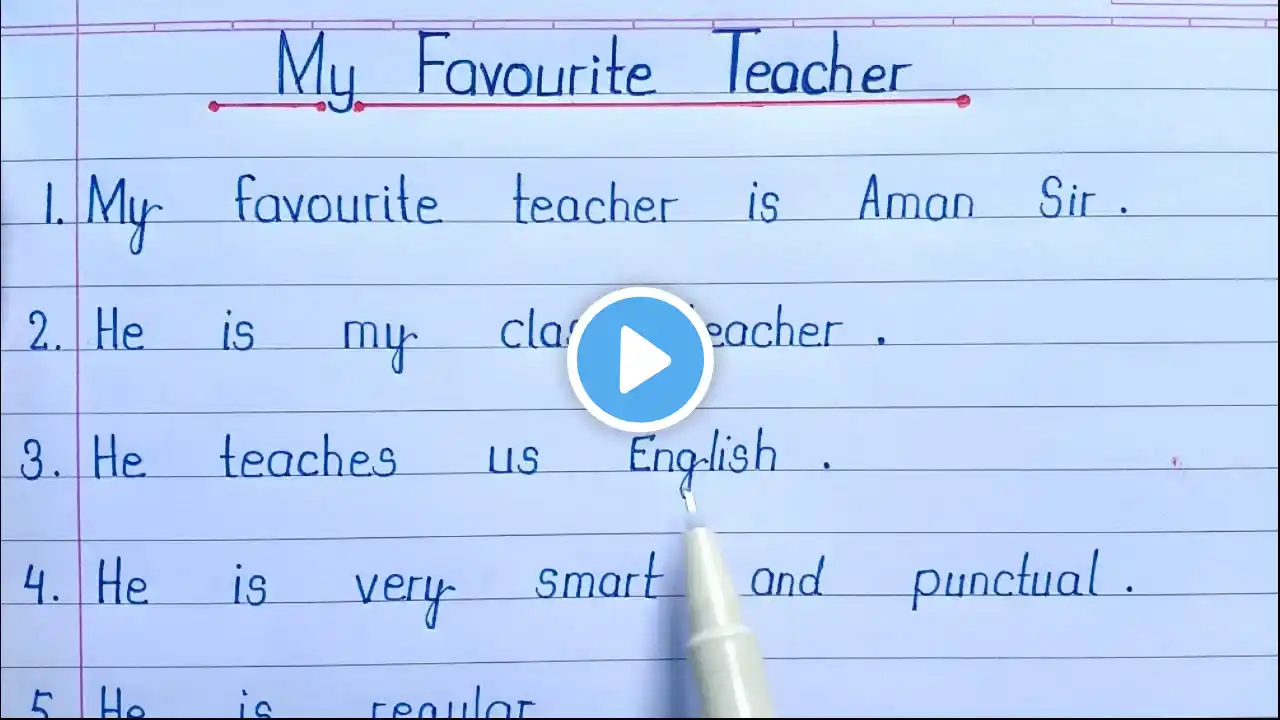 My Favourite Teacher
1. My favourite teacher is Aman Sir.
2. He is my class teacher.
3. He teaches us English.
4. He is very smart and punctual.
5. He is regular